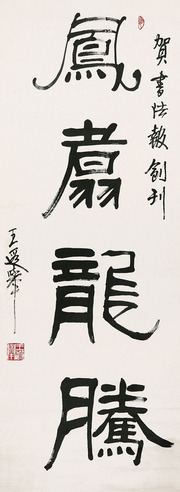 賀書法報創刊
鳳翥龍騰
王遐舉